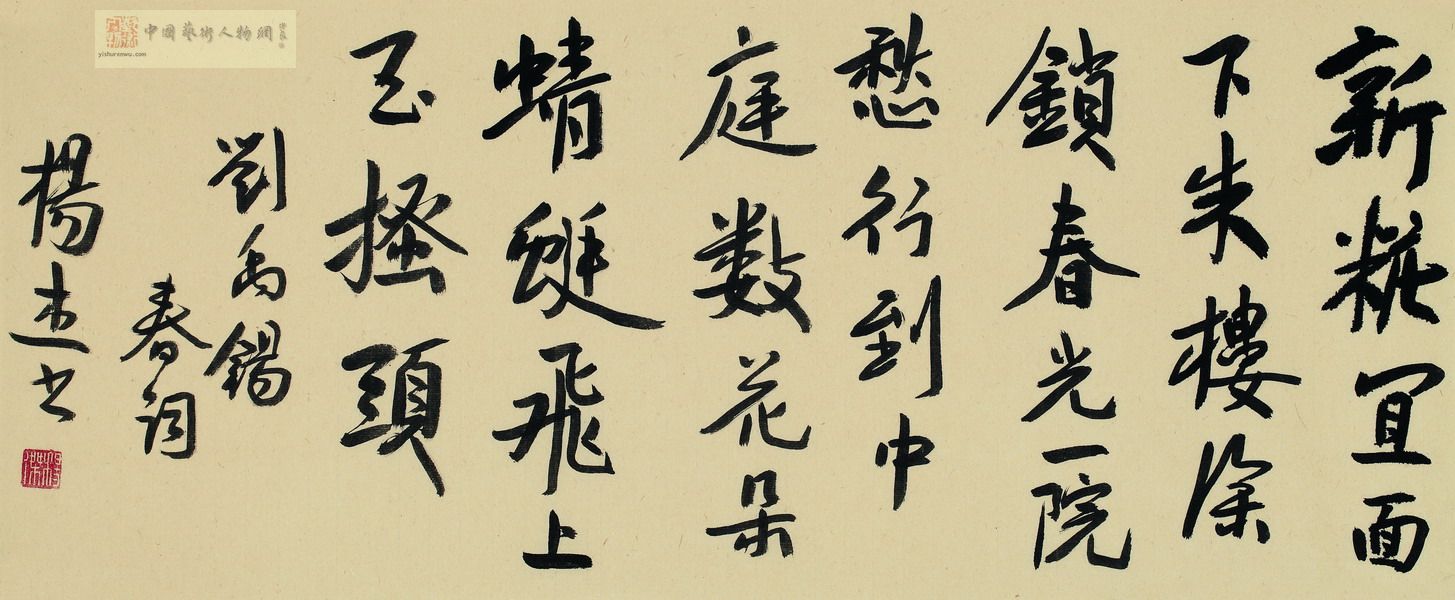 新糚宜面
下朱樓深
鎖春光一院
愁行到中
庭数花朵
蜻蜓飛上
玉搔頭
劉禹錫
春词
楊杰书
中國藝術人物網
yishurenwu.com